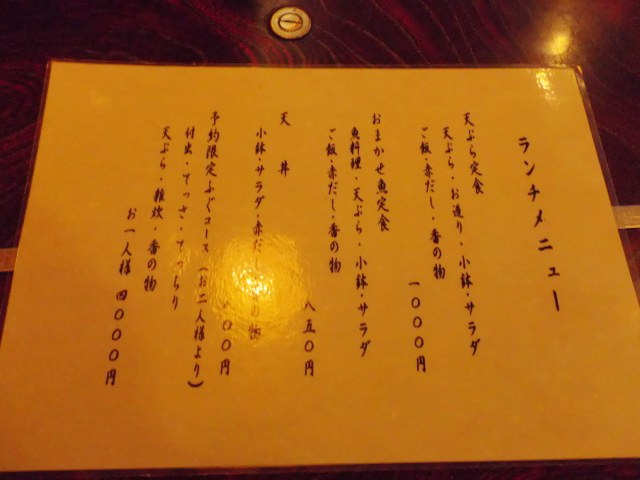 ランチメニュー
天ぷら定食
天ぷら・お造り・小鉢・サラダ
ご飯・赤だし・香の物
一〇〇〇円
おまかせ魚定食
魚料理・天ぷら・小鉢・サラダ
ご飯・赤だし・香の物
八五〇円
天丼
小鉢・サラダ・赤だし の物
〇〇円
予約限定ふぐコース(お二人様より)
付出・てっさ・てっちり
天ぷら・雑炊・香の物
お一人様 四〇〇〇円